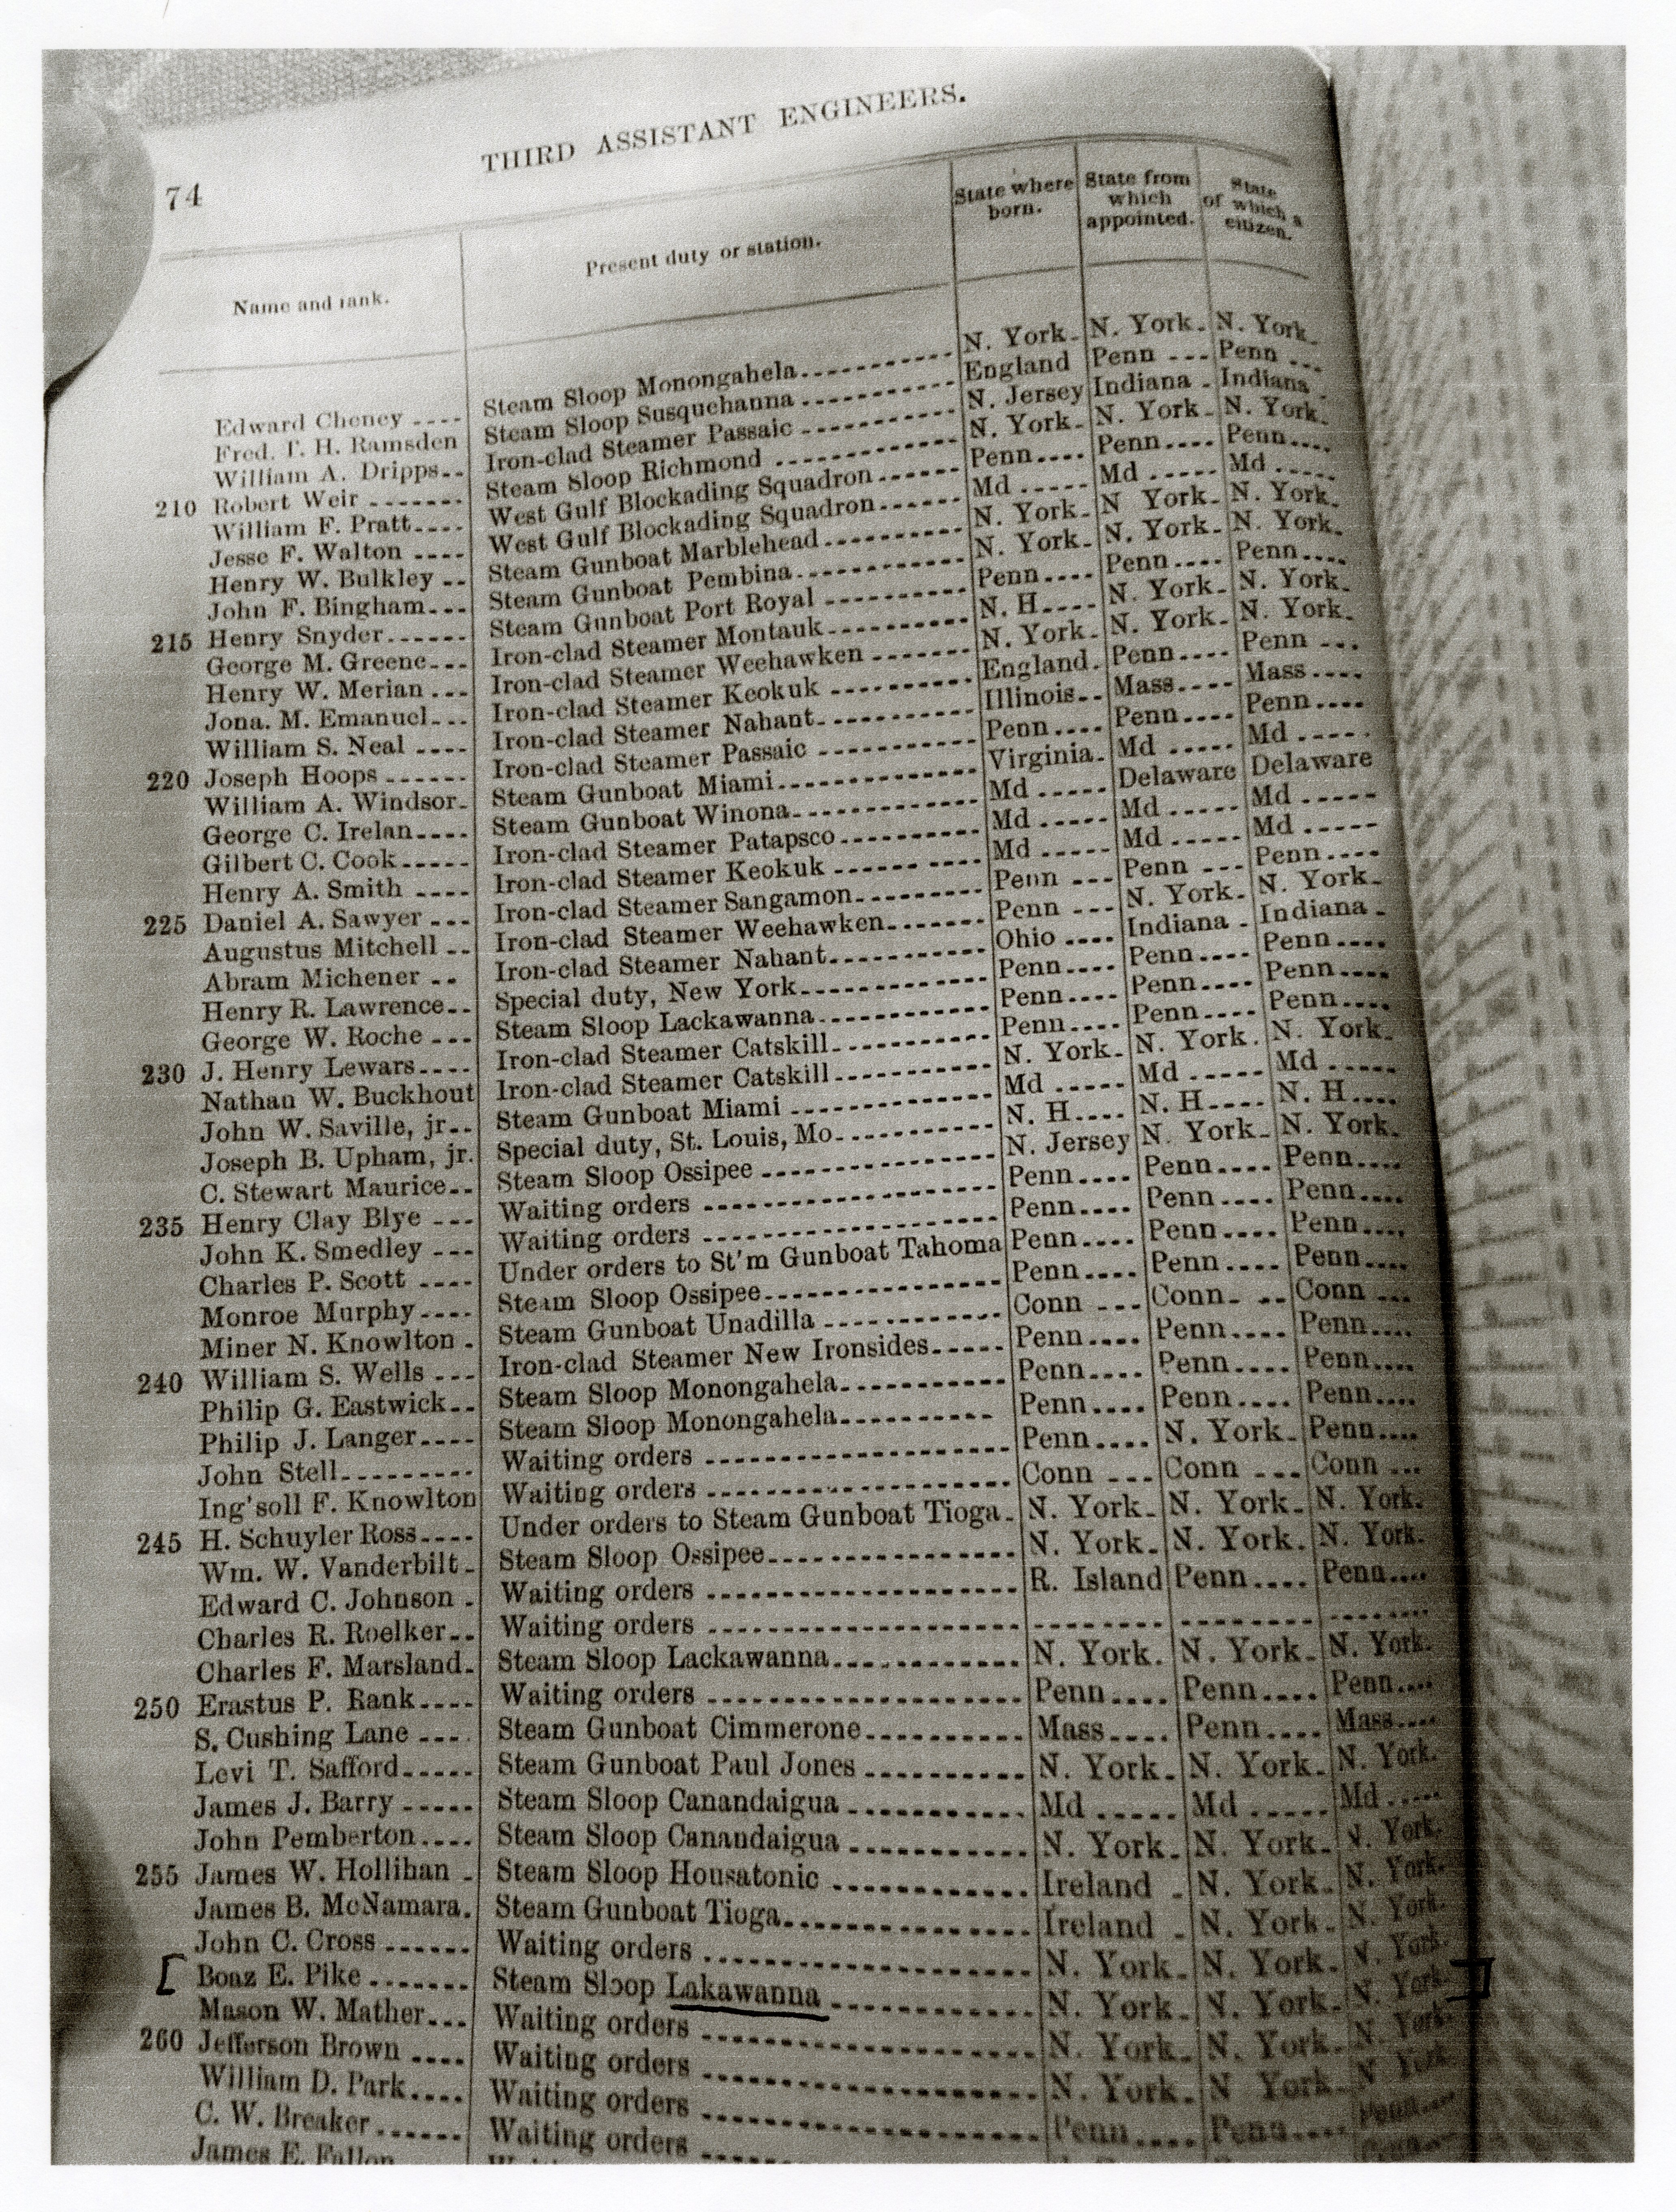 74
THIRD ASSISTANT ENGINEERS.
Name and rank. Present duty or station. State where born. State from which appointed. State of which a citizen.
Edward Cheney ---- Steam Sloop Monongahela---------- N. York- N. York- N. York-
Fred. T. H. Ramsden Steam Sloop Susquehanna ---------- England Penn --- Penn ---
William A. Dripps-- Iron-clad Steamer Passaic ---------- N. Jersey Indiana - Indiana
210 Robert Weir ------- Steam Sloop Richmond ---------- N. York- N. York- N. York-
William F. Pratt---- West Gulf Blockading Squadron------ Penn---- Penn---- Penn----
Jesse F. Walton ---- West Gulf Blockading Squadron------ Md ----- Md ----- Md -----
Henry W. Bulkley -- Steam Gunboat Marblehead---------- N. York- N York- N. York-
John F. Bingham--- Steam Gunboat Pembina---------- N. York- N. York- N. York-
215 Henry Snyder------ Steam Gunboat Port Royal ---------- Penn---- Penn---- Penn----
George M. Greene--- Iron-clad Steamer Montauk---------- N. H---- N. York- N. York-
Henry W. Merian --- Iron-clad Steamer Weehawken ------- N. York- N. York- N. York-
Jona. M. Emanuel--- Iron-clad Steamer Keokuk ---------- England- Penn---- Penn ---
William S. Neal ---- Iron-clad Steamer Nahant---------- Illinois-- Mass---- Mass----
220 Joseph Hoops ------ Iron-clad Steamer Passaic ---------- Penn---- Penn---- Penn----
William A. Windsor- Steam Gunboat Miami---------- Virginia- Md ----- Md -----
George C. Irelan---- Steam Gunboat Winona---------- Md ----- Delaware Delaware
Gilbert C. Cook----- Iron-clad Steamer Patapsco---------- Md ----- Md ----- Md -----
Henry A. Smith ---- Iron-clad Steamer Keokuk ---------- Md ----- Md ----- Md -----
225 Daniel A. Sawyer --- Iron-clad Steamer Sangamon--------- Penn --- Penn --- Penn----
Augustus Mitchell -- Iron-clad Steamer Weehawken------- Penn --- N. York- N. York-
Abram Michener -- Iron-clad Steamer Nahant---------- Ohio ---- Indiana - Indiana -
Henry R. Lawrence-- Special duty, New York---------- Penn---- Penn---- Penn----
George W. Roche --- Steam Sloop Lackawanna---------- Penn---- Penn---- Penn----
230 J. Henry Lewars---- Iron-clad Steamer Catskill---------- Penn---- Penn---- Penn----
Nathan W. Buckhout Iron-clad Steamer Catskill---------- N. York- N. York. N. York-
John W. Saville, jr-- Steam Gunboat Miami ---------- Md ----- Md ----- Md -----
Joseph B. Upham, jr. Special duty, St. Louis, Mo---------- N. H---- N. H---- N. H----
C. Stewart Maurice-- Steam Sloop Ossipee ---------- N. Jersey N. York- N. York-
235 Henry Clay Blye --- Waiting orders ---------- Penn---- Penn---- Penn----
John K. Smedley --- Waiting orders ---------- Penn---- Penn---- Penn----
Charles P. Scott ---- Under orders to St'm Gunboat Tahoma Penn---- Penn---- Penn----
Monroe Murphy---- Steam Sloop Ossipee---------- Penn---- Penn---- Penn----
Miner N. Knowlton - Steam Gunboat Unadilla ---------- Conn --- Conn- -- Conn ---
240 William S. Wells --- Iron-clad Steamer New Ironsides----- Penn---- Penn---- Penn----
Philip G. Eastwick-- Steam Sloop Monongahela---------- Penn---- Penn---- Penn----
Philip J. Langer---- Steam Sloop Monongahela---------- Penn---- Penn---- Penn----
John Stell--------- Waiting orders ---------- Penn---- N. York- Penn----
Ing'soll F. Knowlton Waiting orders ---------- Conn --- Conn --- Conn ---
245 H. Schuyler Ross---- Under orders to Steam Gunboat Tioga- N. York- N. York- N. York-
Wm. W. Vanderbilt- Steam Sloop Ossipee---------- N. York- N. York- N. York-
Edward C. Johnson - Waiting orders ---------- R. Island Penn---- Penn----
Charles R. Roelker-- Waiting orders ---------- -------- -------- --------
Charles F. Marsland- Steam Sloop Lackawanna---------- N. York- N. York- N. York-
250 Erastus P. Rank---- Waiting orders ---------- Penn---- Penn---- Penn----
S. Cushing Lane ---- Steam Gunboat Cimmerone---------- Mass---- Penn---- Mass----
Levi T. Safford----- Steam Gunboat Paul Jones ---------- N. York- N. York- N. York-
James J. Barry ----- Steam Sloop Canandaigua ---------- Md ----- Md ----- Md -----
John Pemberton---- Steam Sloop Canandaigua ---------- N. York- N. York- N. York-
255 James W. Hollihan - Steam Sloop Housatonic ---------- Ireland - N. York- N. York-
James B. McNamara. Steam Gunboat Tioga---------- Ireland - N. York- N. York-
John C. Cross ------ Waiting orders ---------- N. York- N. York- N. York-
[ Boaz E. Pike ------- Steam Sloop Lakawanna ---------- N. York- N. York- N. York- ]
Mason W. Mather--- Waiting orders ---------- N. York- N. York- N. York-
260 Jefferson Brown ---- Waiting orders ---------- N. York- N York- N York
William D. Park---- Waiting orders ---------- Penn---- Penn---- Penn----
C. W. Breaker------ Waiting orders ----------
James E. Fallon